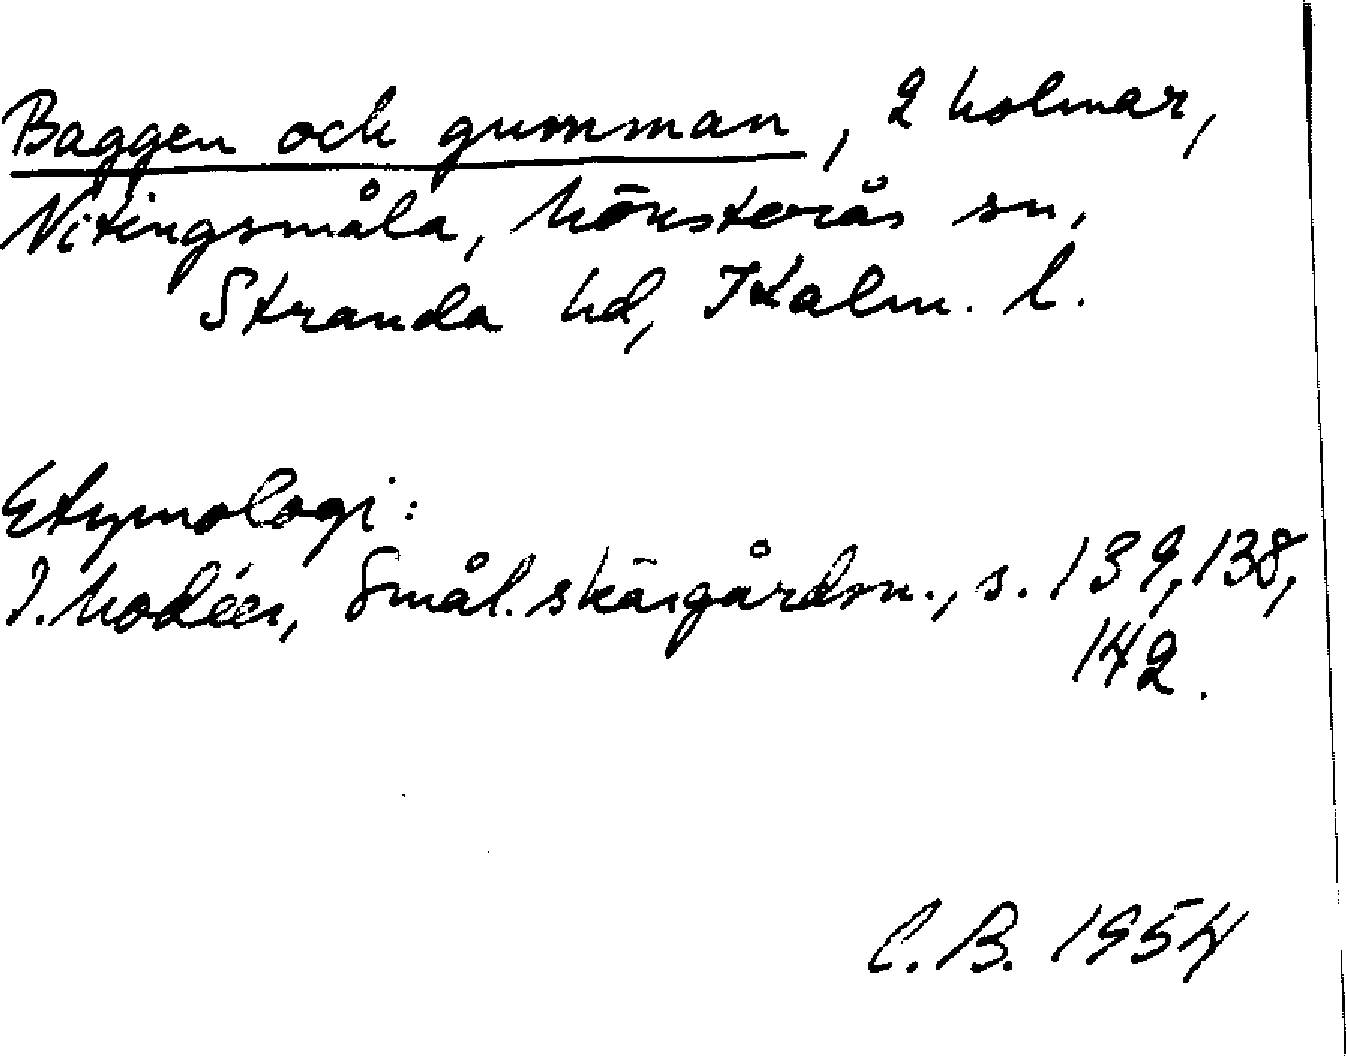 Baggen och gumman, 2 holmar,
Nitingsmåla, Mönsterås sn,
Stranda hd, Kalm. l.
Etymologi:
I. Modéer, Smål. skärgårdsn., s. 139, 138,
142.
C. B. 1954